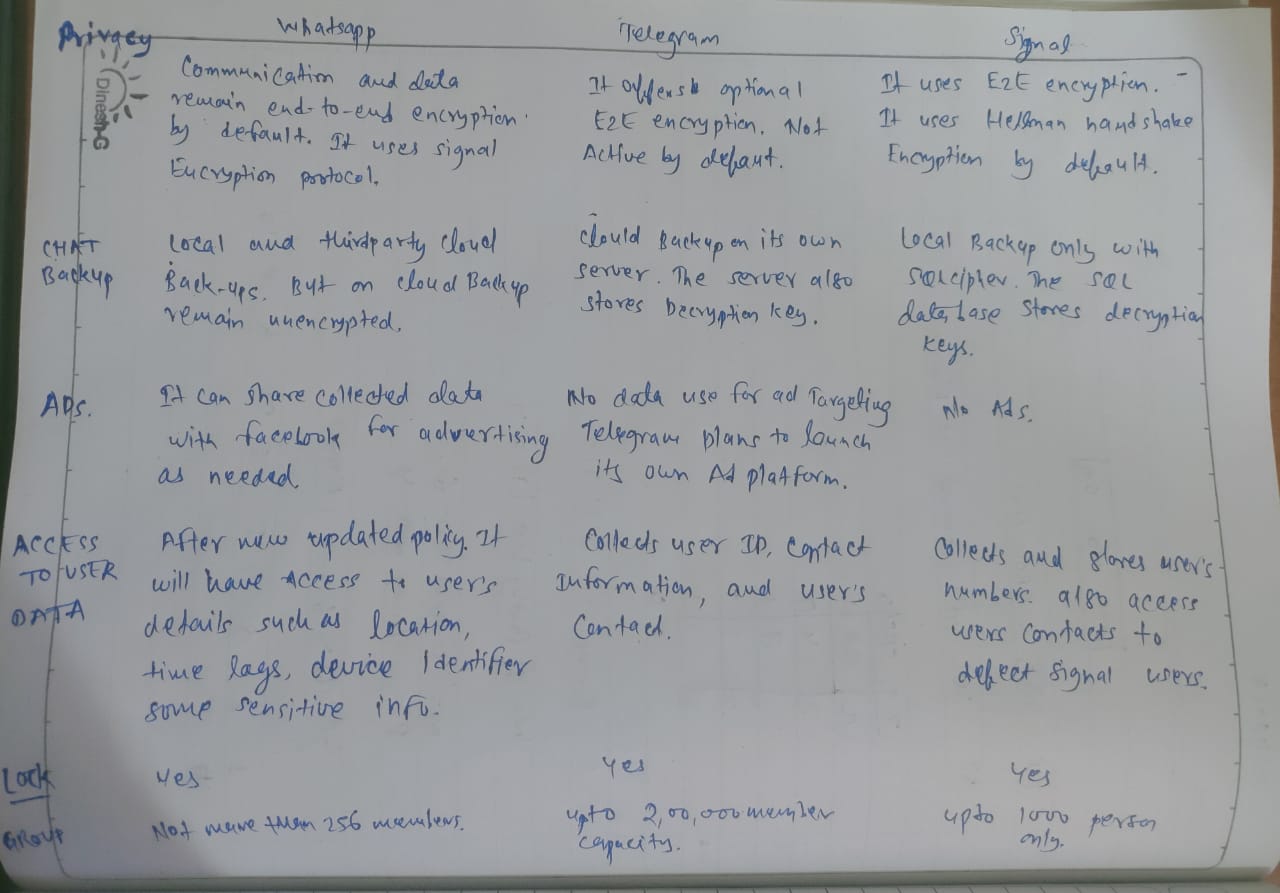 Privacy
Whatsapp
Telegram
Signal
Dinesh-G
Communication and data
remain end-to-end encryption.
by default. It uses signal
Encryption protocol.
It offers optional
E2E encryption. Not
Active by defaut.
It uses E2E encryption.
It uses Hellman handshake
Encryption by default.
CHAT
Backup
Local and thirdparty cloud
Back-ups. But on cloud Backup
remain unencrypted.
Clould Backup on its own
server. The server also
stores Decryption key.
Local Backup only with
SQLcipher. The SQL
database stores decryption
keys.
ADS.
It can share collected data
with facebook for advertising
as needed.
No data use for ad Targeting
Telegram plans to launch
its own Ad platform.
No Ads.
ACCESS
TO USER
DATA
After new updated policy. It
will have Access to user's
details such as location,
time lags, device Identifier
some sensitive info.
Collects user ID, contact
Information, and user's
Contact.
Collects and stores user's
numbers. also access
users contacts to
detect signal users.
Lock
yes
yes
yes
GROUP
Not more than 256 members.
upto 2,00,000 member
capacity.
upto 1000 person
only.